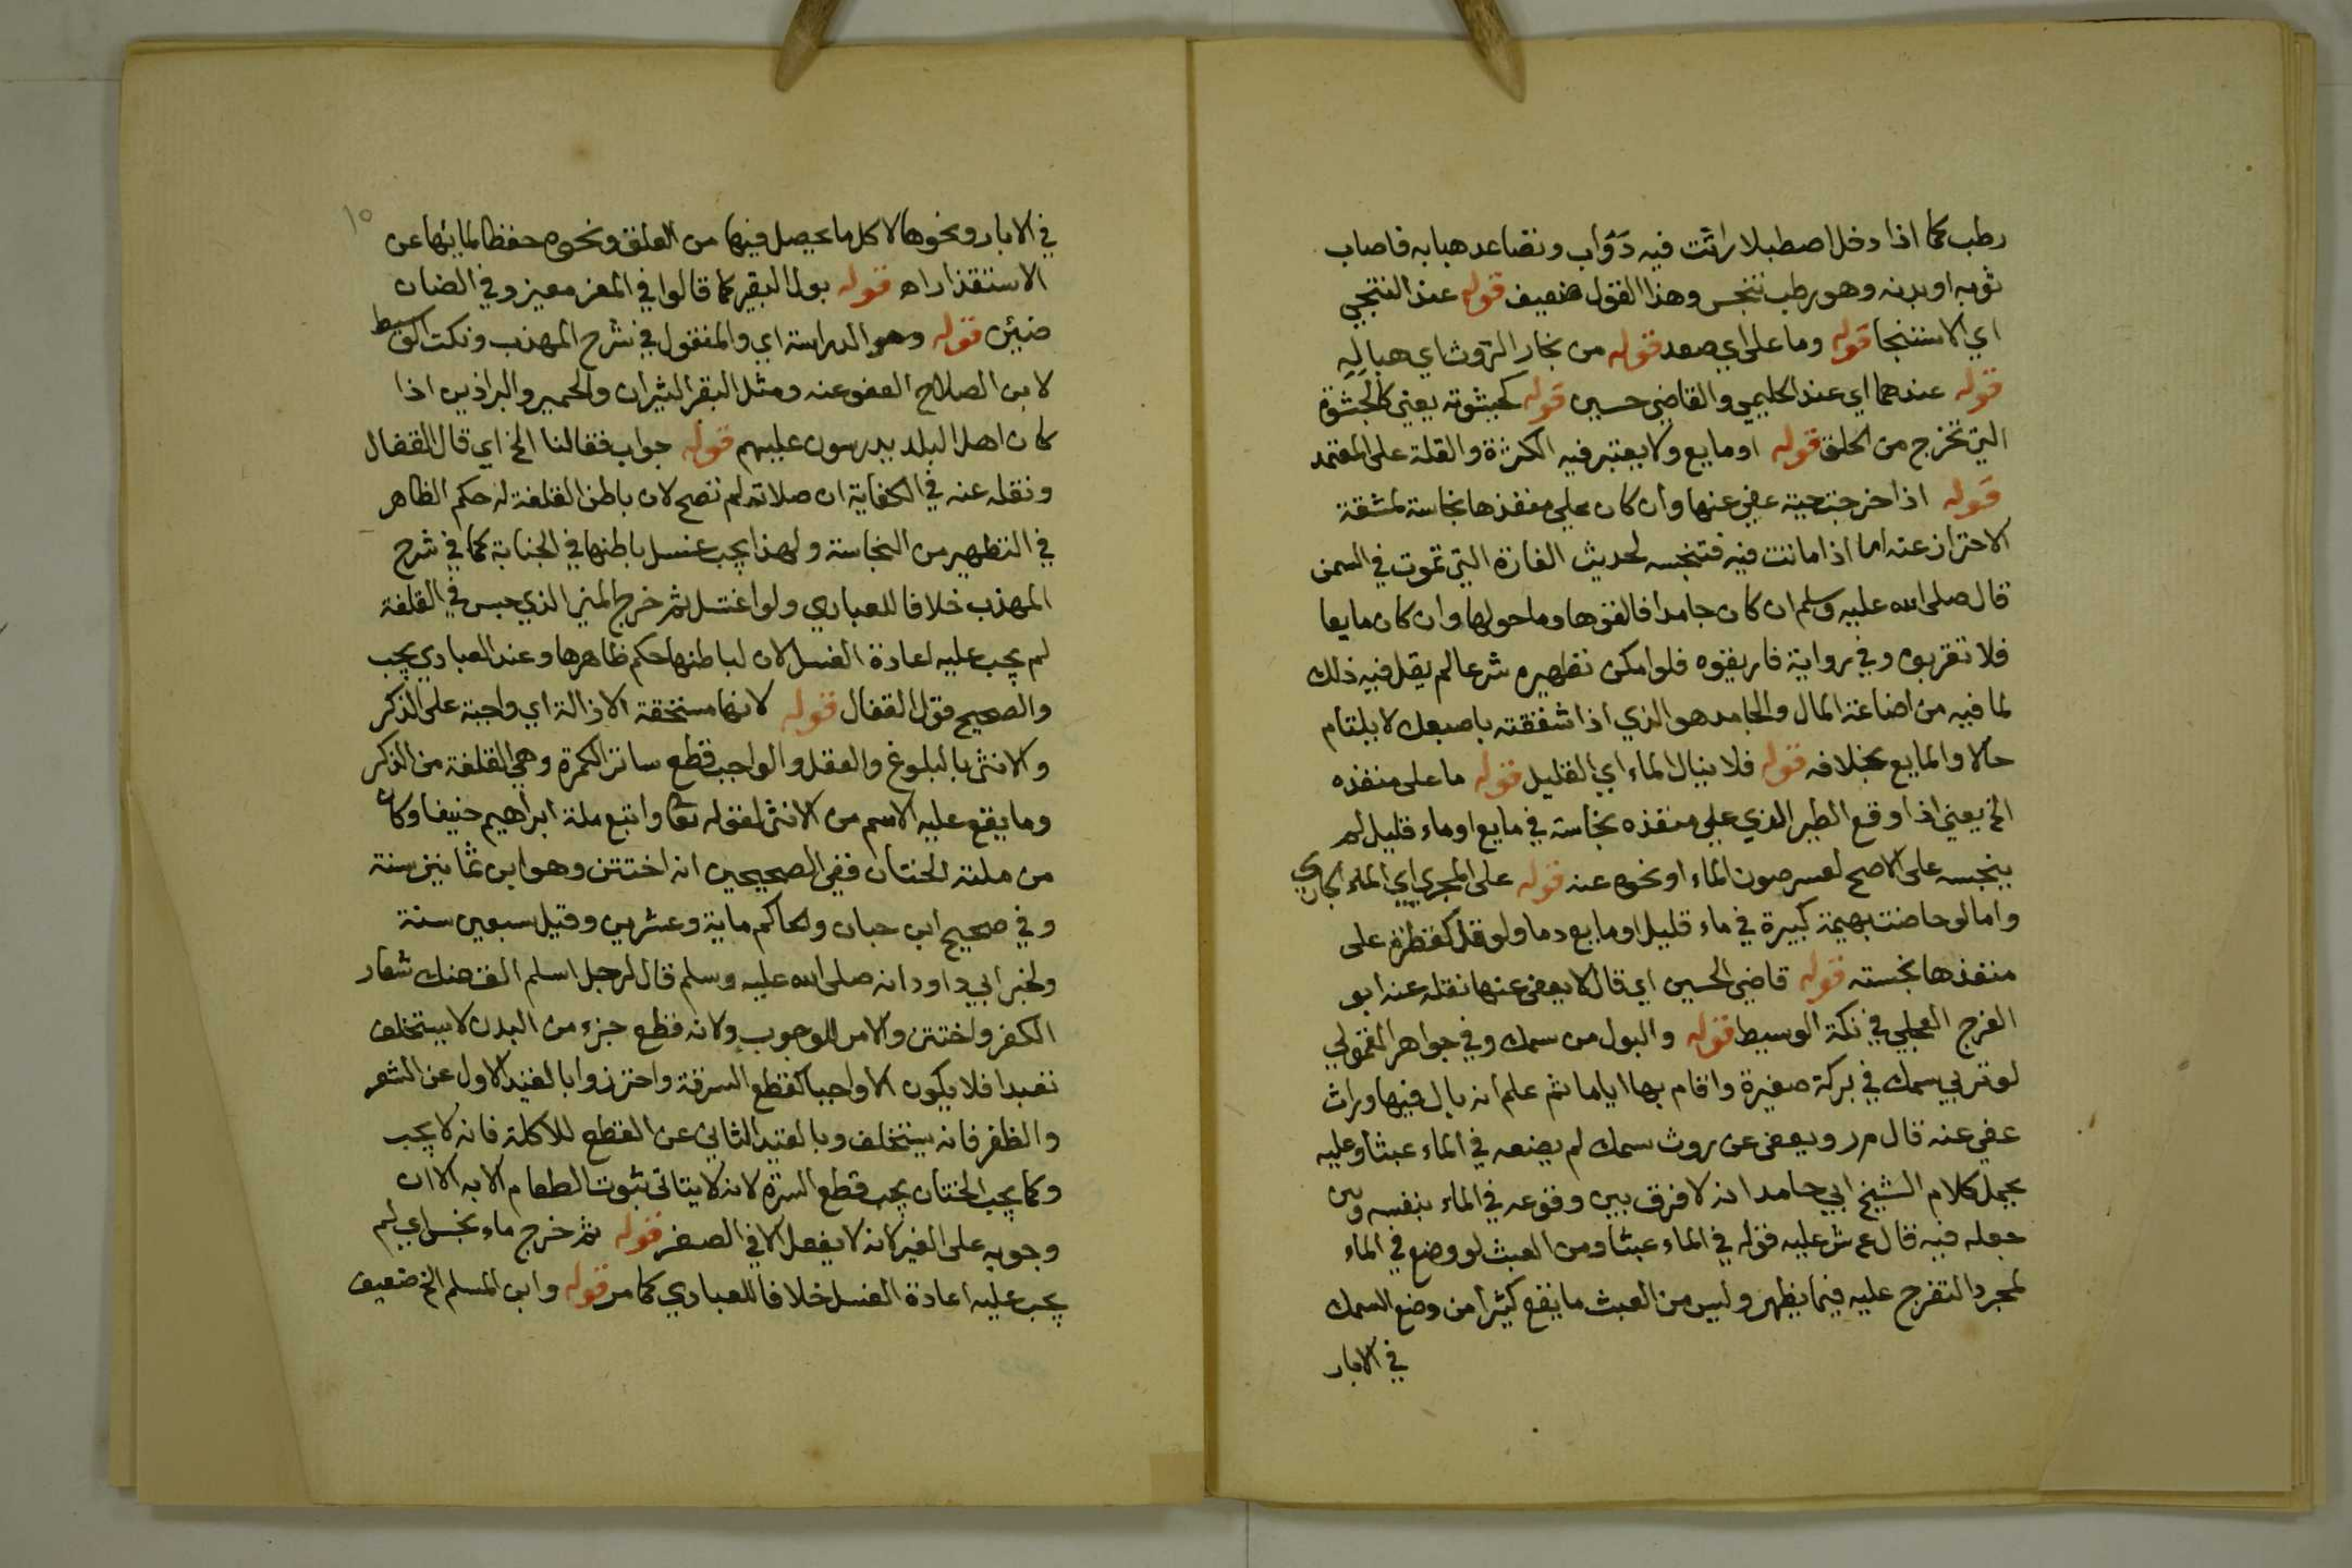 رطب كما اذا دخل اصطبلا راثت فيه دوّاب وتصاعد هبابه فاصاب
ثوبه او بدنه وهو رطب تنجس وهذا القول ضعيف قوله عند التنجي
اي الاستنجا قوله وما على اي صعد قوله من بخار الروث اي هبابه
قوله عندهما اي عند الحليمي والقاضي حسين قوله كجشوته يعني كالجشوة
التي تخرج من الحلق قوله او مايع ولا يعتبر فيه الكثرة والقلة على المعتمد
قوله اذا خرجت حية عفي عنها وان كان على منفذها نجاسة لمشقة
الاحتراز عنه اما اذا ماتت فيه فتنجسه لحديث الفارة التي تموت في السمن
قال صلى الله عليه وسلم ان كان جامدا فالقوها وما حولها وان كان مايعا
فلا تقربوه وفي رواية فاريقوه فلو امكن تطهيره شرعا لم يقل فيه ذلك
لما فيه من اضاعة المال والجامد هو الذي اذا شققته باصبعك لا يلتام
حالا والمايع بخلافه قوله فلا ينال الماء اي القليل قوله ما على منفذه
الخ يعني اذا وقع الطير الذي على منفذه نجاسة في مايع او ماء قليل لم
ينجسه على الاصح لعسر صون الماء او نحوه عنه قوله على المجري اي الماء الجاري
واما لو حاضت بهيمة كبيرة في ماء قليل او مايع دما ولو قل كقطرة على
منفذها نجسته قوله قاضي الحسين اي قال لا يعفى عنها نقله عنه ابو
الفرج العجلي في نكة الوسيط قوله والبول من سمك وفي جواهر القمولي
لو تربي سمك في بركة صغيرة واقام بها اياما ثم علم انه بال فيها وراث
عفي عنه قال م ر ويعفى عن روث سمك لم يضعه في الماء عبثا وعليه
يحمل كلام الشيخ ابي حامد انه لا فرق بين وقوعه في الماء بنفسه وبين
جعله فيه قال ع ش عليه قوله في الماء عبثا ومن العبث لو وضع في الماء
لمجرد التفرج عليه فيما يظهر وليس من العبث ما يقع كثيرا من وضع السمك
في الابار
١٥
في الابار ونحوها لاكل ما يحصل فيها من العلق ونحوه حفظا لمايها عن
الاستقذار اه قوله بول البقر كما قالوا في المعز معيز وفي الضان
ضئين قوله وهو الدراسة اي والمنقول في شرح المهذب ونكت الوسيط
لابن الصلاح العفو عنه ومثل البقر الثيران والحمير والبراذين اذا
كان اهل البلد يدرسون عليهم قوله جواب فقالنا الخ اي قال القفال
ونقله عنه في الكفاية ان صلاته لم تصح لان باطن القلفة له حكم الظاهر
في التطهير من النجاسة ولهذا يجب غسل باطنها في الجنابة كما في شرح
المهذب خلافا للعبادي ولو اغتسل ثم خرج المني الذي حبس في القلفة
لم يجب عليه اعادة الغسل لان لباطنها حكم ظاهرها وعند العبادي يجب
والصحيح قول القفال قوله لانها مستحقة الازالة اي واجبة على الذكر
والانثى بالبلوغ والعقل والواجب قطع ساتر الكمرة وهي القلفة من الذكر
وما يقع عليه الاسم من الانثى لقوله تعا واتبع ملة ابراهيم حنيفا وكان
من ملته الختان ففي الصحيحين انه اختتن وهو ابن ثمانين سنة
وفي صحيح ابن حبان والحاكم ماية وعشرين وقيل سبعين سنة
ولخبر ابي داود انه صلى الله عليه وسلم قال لرجل اسلم الق عنك شعار
الكفر واختتن والامر للوجوب ولانه قطع جزء من البدن لا يستخلف
تعبدا فلا يكون الا واجبا كقطع السرقة واحترزوا بالقيد الاول عن الشعر
والظفر فانه يستخلف وبالقيد الثاني عن القطع للاكلة فانه لا يجب
وكما يجب الختان يجب قطع السرة لانه لا يتاتى ثبوت الطعام الا به الا ان
وجوبه على الغير لانه لا يفعل الا في الصغر قوله ثم خرج ماء نجس اي لم
يجب عليه اعادة الغسل خلافا للعبادي كما مر قوله وابن المسلم الخ ضعيف